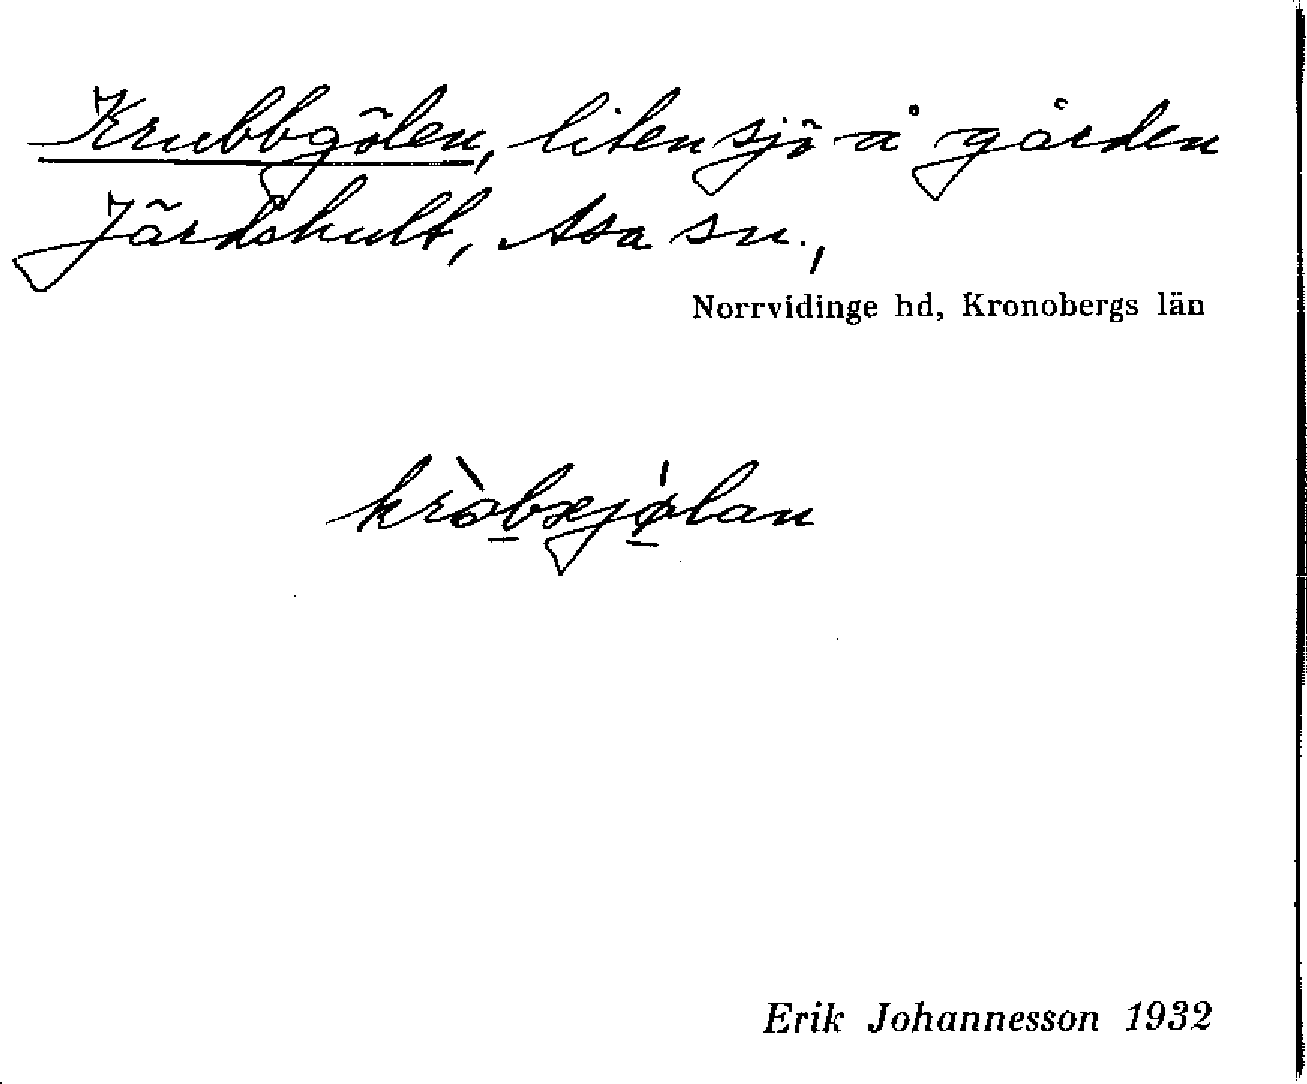 Krubbgölen, liten sjö å gården
Järdshult, Asa sn.,
Norrvidinge hd, Kronobergs län
Erik Johannesson 1932